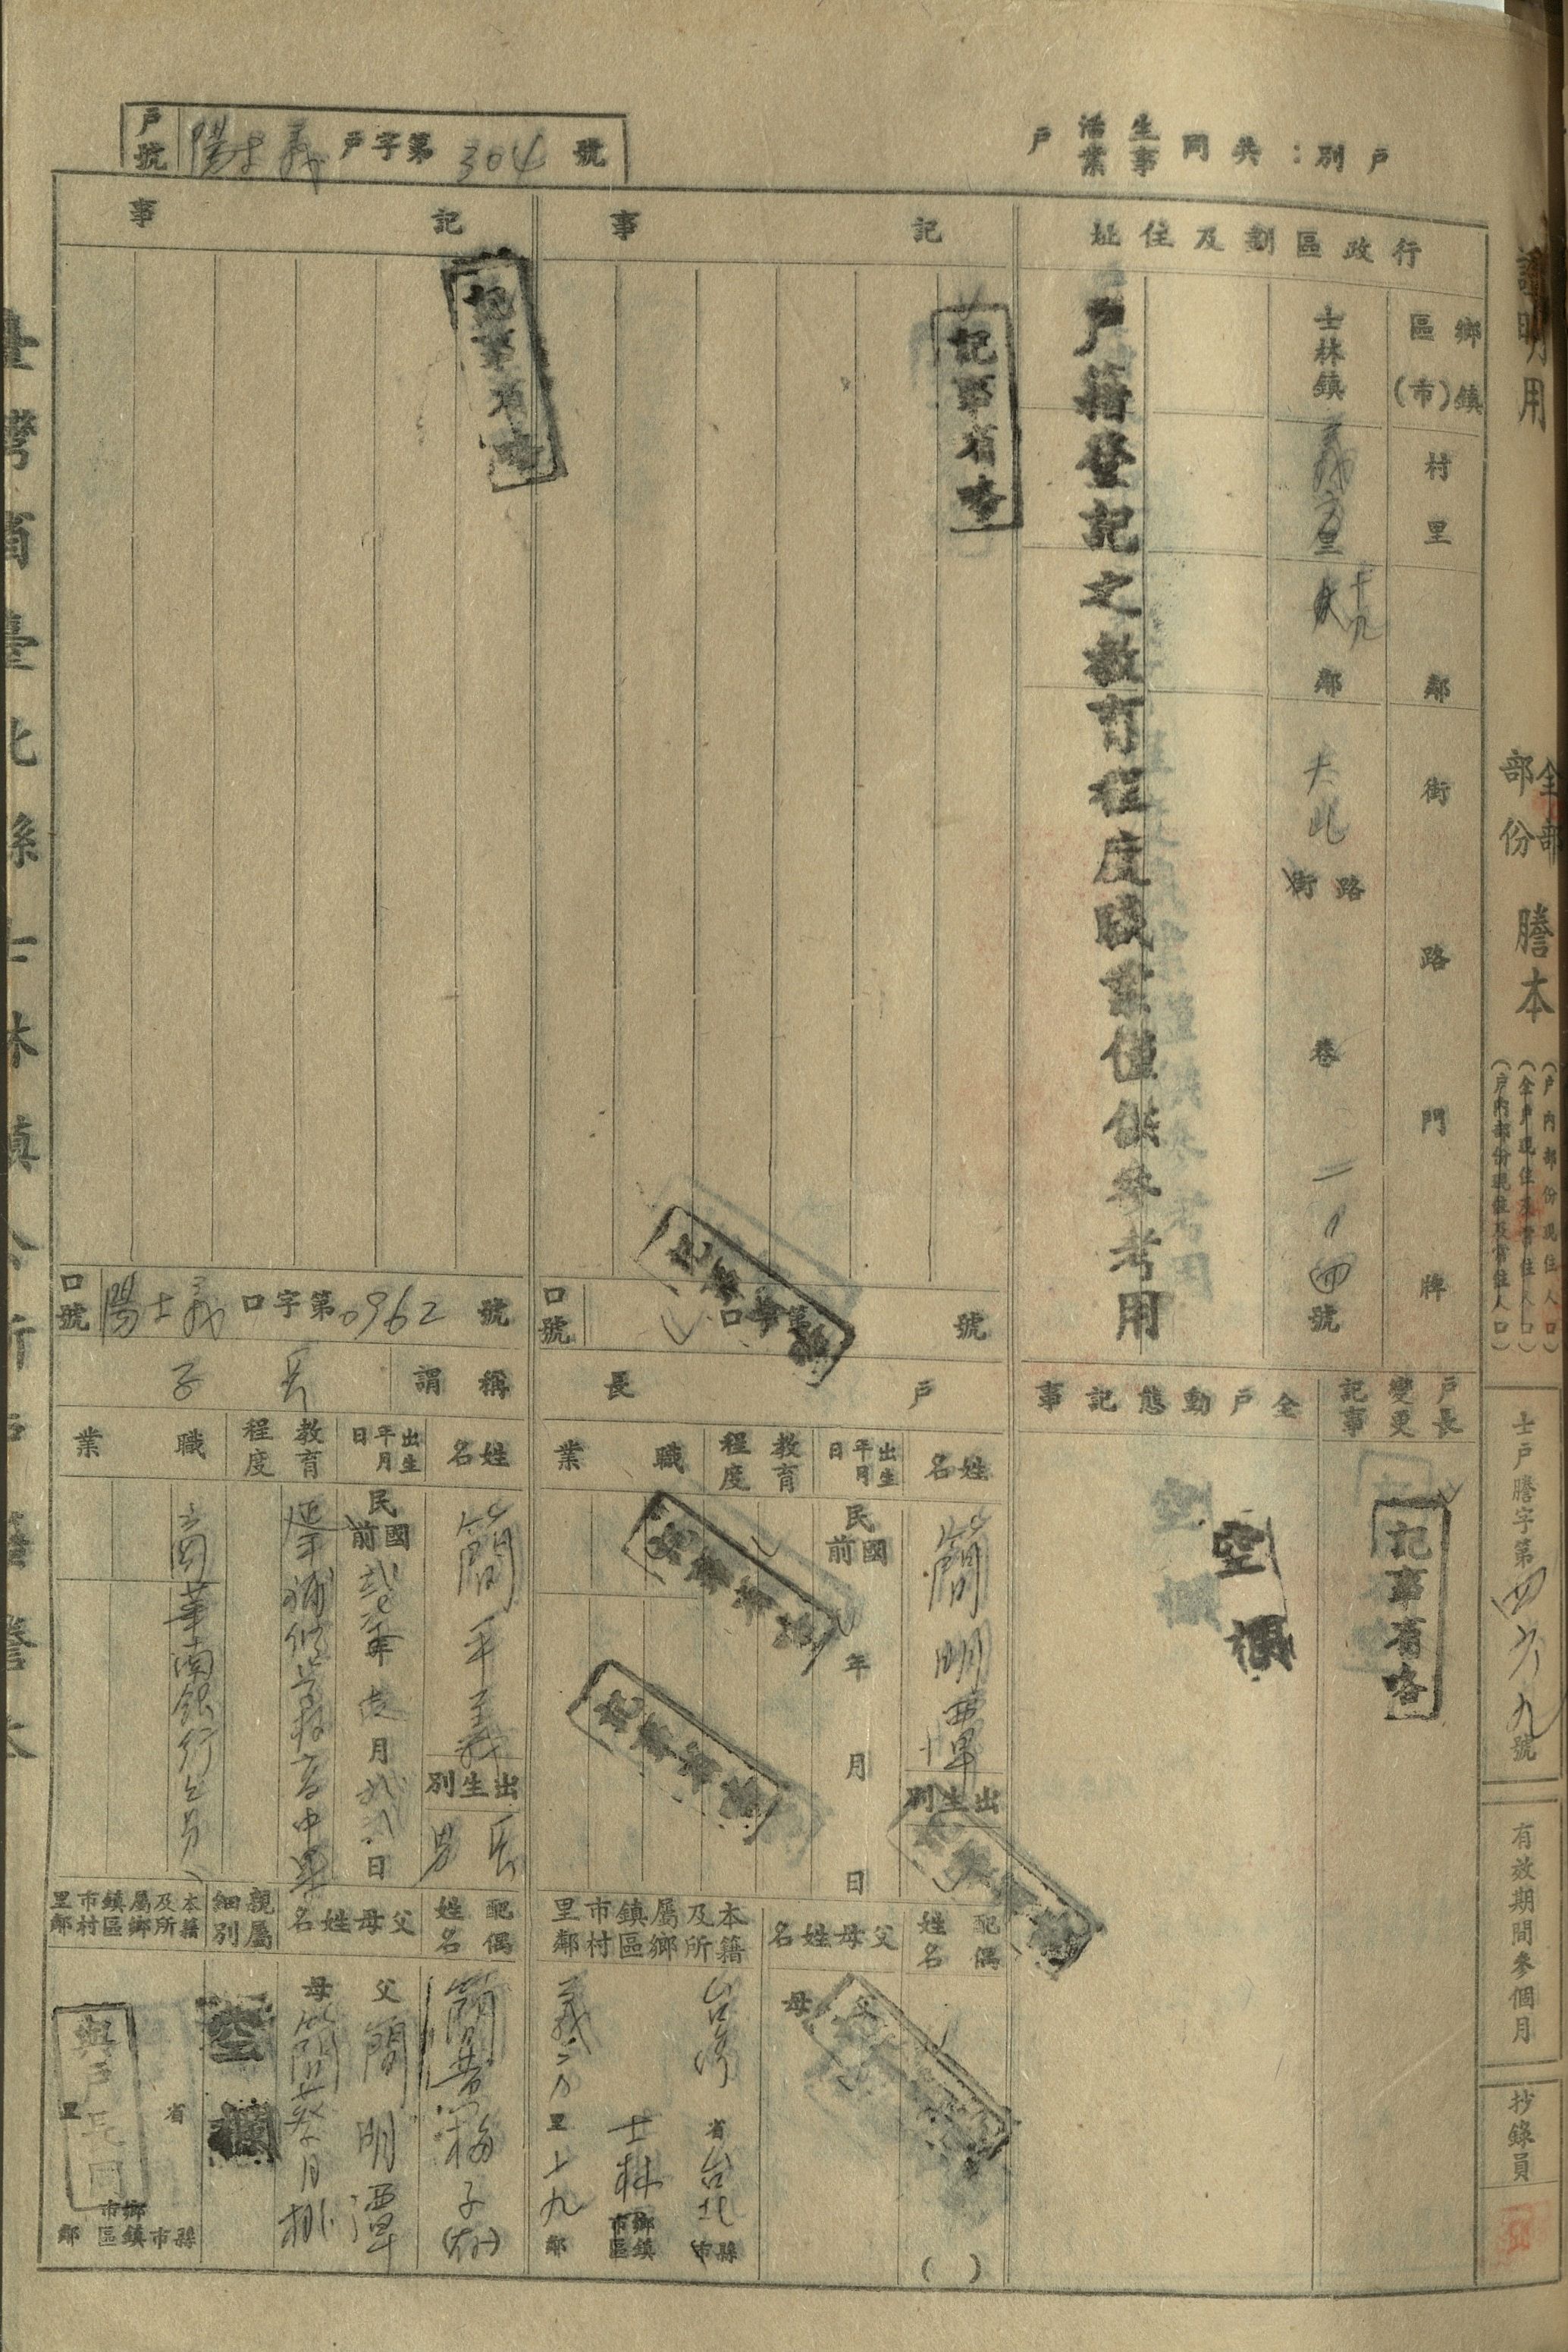 證明用
全部
部份
謄本
(戶內部份現住人口)
(全戶現住及常住人口)
(戶內部份現住及常住人口)
士戶謄字第四六九號
有效期間參個月
抄錄員
戶別：共同生活戶
事業
戶號 陽士義戶字第304號
行政區劃及住址
鄉鎮區(市)
村里
鄰
街路門牌
士林鎮
義方里
十九鄰
大北路
街
巷
二一四號
戶籍登記之教育程度職業僅供參考用
戶長變更記事
記事省略
全戶動態記事
空欄
記事
記事省略
口號 口字第 號
戶長
姓名
簡明潭
出生別
出生年月日
民國
前
年
月
日
教育程度
職業
配偶姓名
( )
父母姓名
父
母
本籍及所屬鄉鎮市區村里鄰
台灣省台北縣
市
士林鄉鎮
市區
義方里十九鄰
記事
記事省略
口號 陽士義口字第0962號
稱謂
長子
姓名
簡
義
出生別
長男
出生年月日
民國
前
年
月
日
教育程度
職業
商
華南銀行
配偶姓名
簡黃梅子
父母姓名
父
簡明潭
母
簡蔡月桃
親屬細別
空欄
本籍及所屬鄉鎮市區村里鄰
與戶長同
省
縣市
鄉鎮
市區
里
鄰